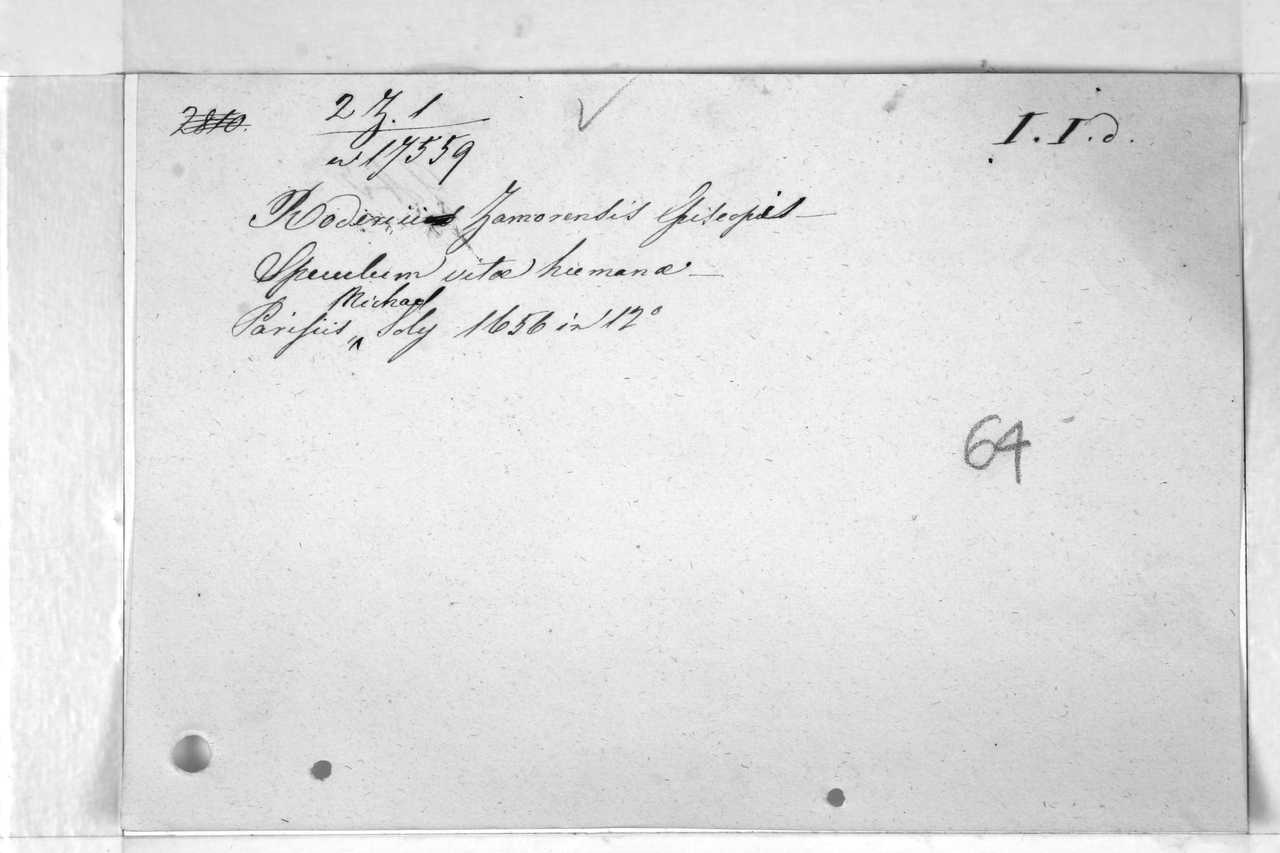 2810.
2 Z. 1
w 17559
I. I. d.
Roderici Zamorensis Episcopi
Speculum vitæ humanæ
Parisiis Michael Soly 1656 in 12º
64